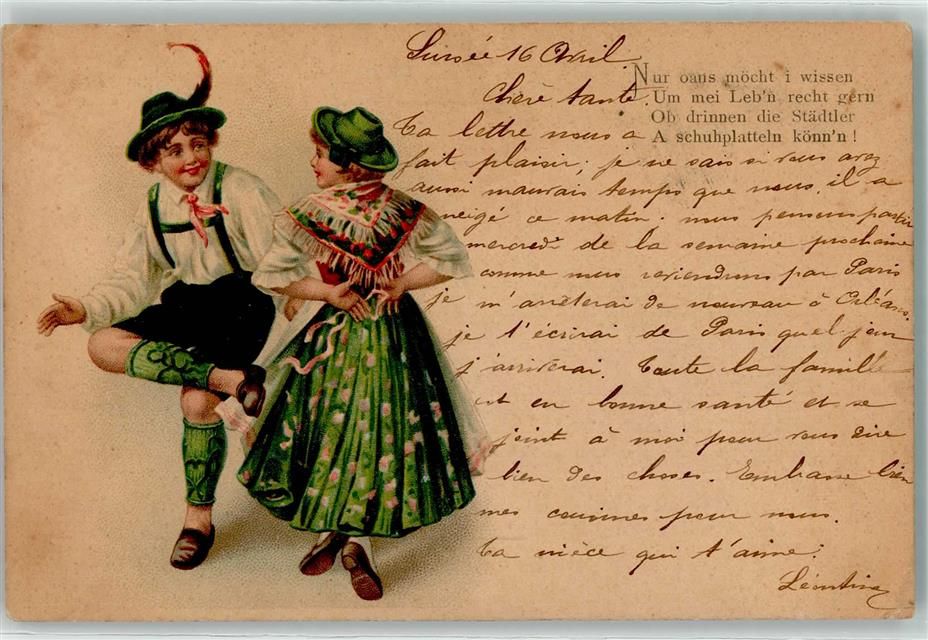 16 Avril
Chère tante.
Nur oans möcht i wissen
Um mei Leb'n recht gern
Ob drinnen die Städtler
A schuhplatteln könn'n!
Ta lettre nous a
fait plaisir; je ne sais si vous avez
aussi mauvais temps que nous, il a
neigé ce matin. nous pensons partir
mercredi de la semaine prochaine
comme nous reviendrons par Paris
je m'arrêterai de nouveau à Orléans.
je t'écrirai de Paris quel jour
j'arriverai. Toute la famille
est en bonne santé et se
joint à moi pour vous dire
bien des choses. Embrasse bien
mes cousines pour nous.
Ta nièce qui t'aime:
Léontine